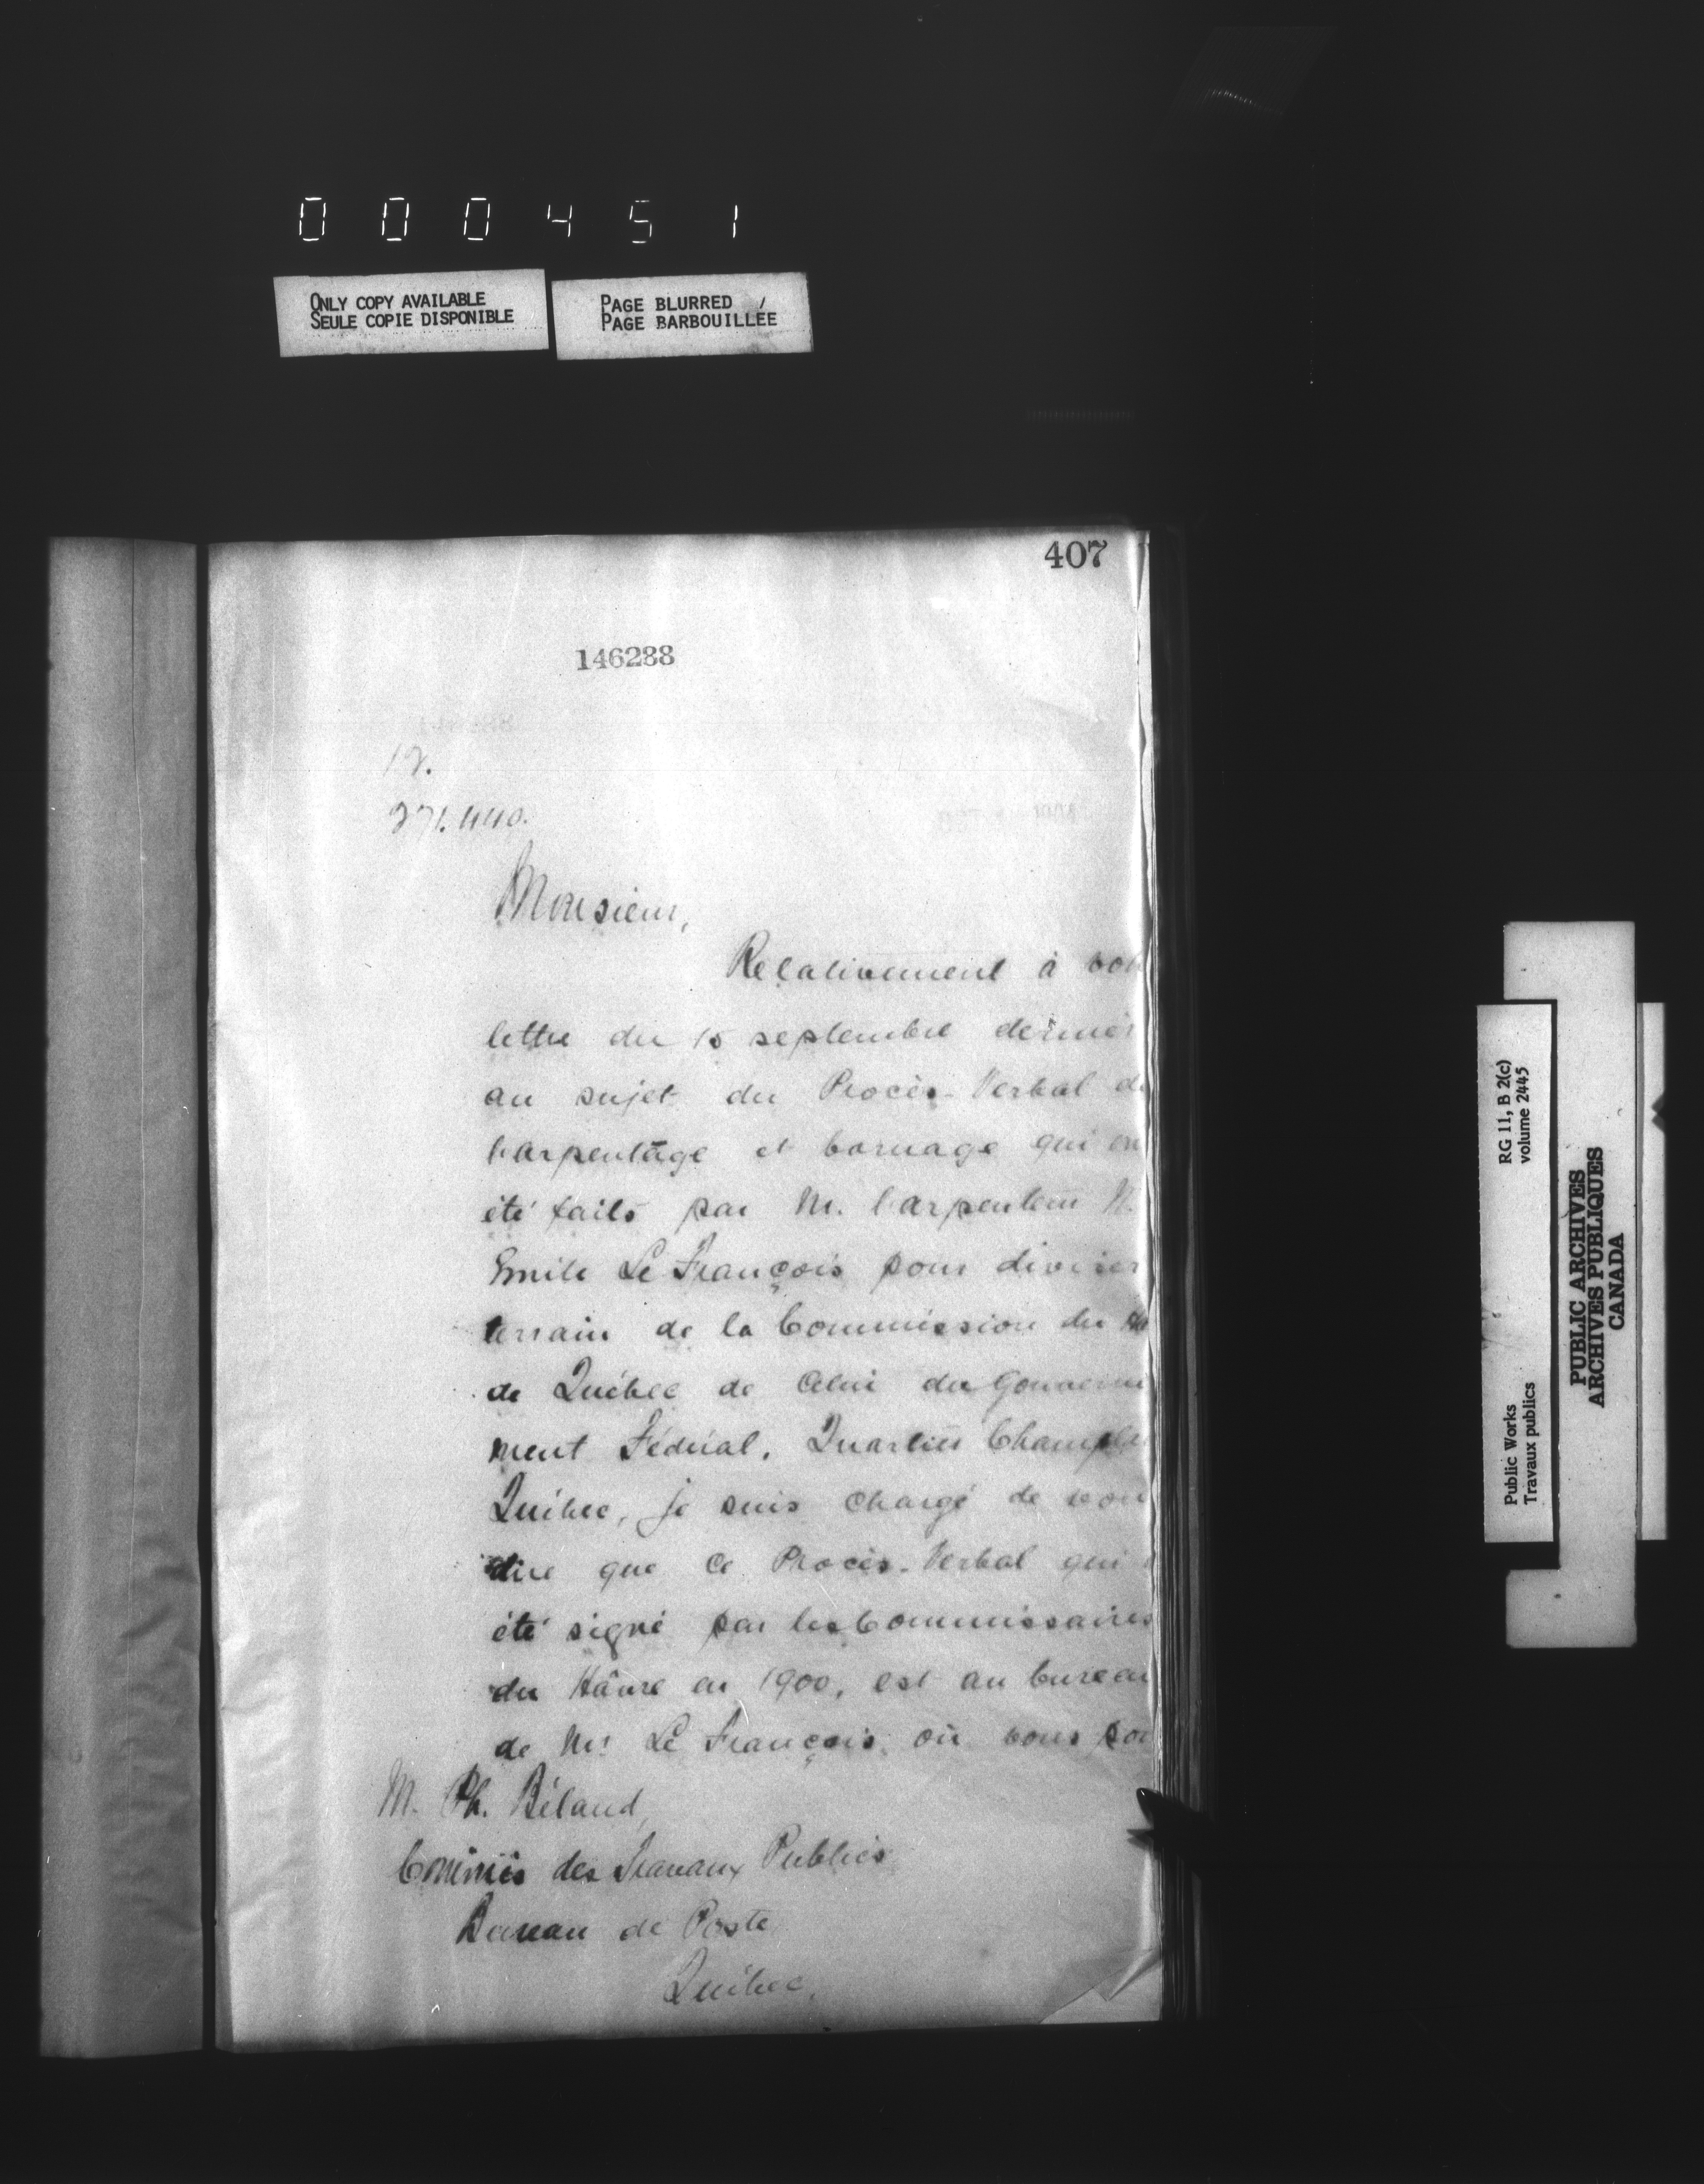 000451
ONLY COPY AVAILABLE
SEULE COPIE DISPONIBLE
PAGE BLURRED
PAGE BARBOUILLÉE
407
146288
Monsieur,
Relativement à vot
lettre du 15 septembre dernier
au sujet du Procès-Verbal d
l'arpentage et bornage qui on
été faits par M. l'arpenteur
Emile Le François pour diviser
terrain de la Commission du
de Québec de celui du Gouverne
ment Fédéral, Quartier Champla
Québec, je suis chargé de vou
dire que ce Procès-Verbal qui
été signé par les Commissaires
du Hâvre en 1900, est au bureau
de Mr Le François où vous pou
M. Ph. Béland,
Commis des Travaux Publics
Bureau de Poste
Québec.
Public Works
Travaux publics
RG 11, B 2(c)
volume 2445
PUBLIC ARCHIVES
ARCHIVES PUBLIQUES
CANADA